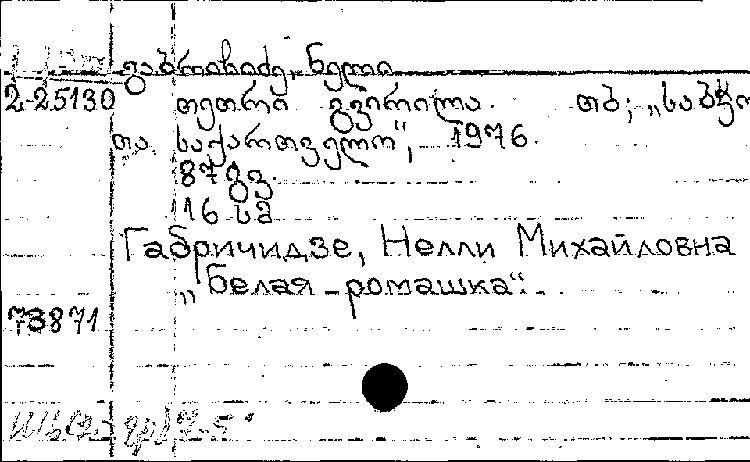 გაბრიჩიძე, ნელი
2-25130 თეთრი გვირილა. თბ; „საბჭო
თა საქართველო“, 1976.
87 გვ.
16 სმ
Габричидзе, Нелли Михайловна
„Белая ромашка“.
73871